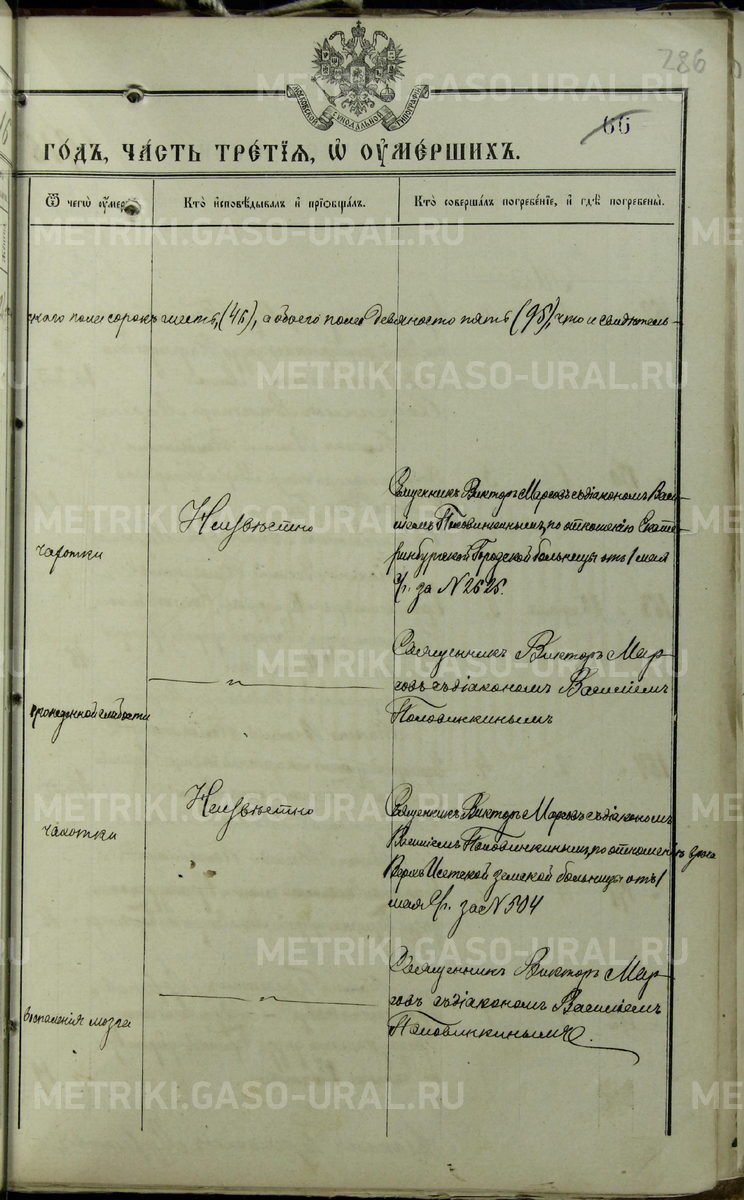 286
МОСКОВСКОЙ СѴНОДАЛЬНОЙ ТИПОГРАФІИ
66
ГО́ДЪ, ЧА́СТЬ ТРЕ́ТІЯ, Ѡ ОУМЕ́РШИХЪ.
Ѿ чегѡ оумер
Кто̀ и҆сповѣ́дывалъ и҆ прїѡбща́лъ.
Кто̀ соверша́лъ погребе́нїе, и҆ гдѣ̀ погребены̀.
скаго пола сорокъ шесть, (46), а обоего пола девяносто пять (95), что и свидѣтель-
чахотки
Неизвѣстно
Священникъ Викторъ Маровъ съ діакономъ Васи-
ліемъ Половинкинымъ, по отношенію Екате-
ринбургской Городской больницы отъ 1 мая
с/г. за № 2525.
врожденной слабости
— „ —
Священникъ Викторъ Мар
овъ съ діакономъ Василіемъ
Половинкинымъ
чахотки
Неизвѣстно
Священникъ Викторъ Маровъ съ діакономъ
Василіемъ Половинкинымъ, по отношенію врача
Верхъ Исетской земской больницы отъ 1
мая с/г. за № 504
воспаленія мозга
— „ —
Священникъ Викторъ Мар
овъ съ діакономъ Василіемъ
Половинкинымъ.
METRIKI.GASO-URAL.RU